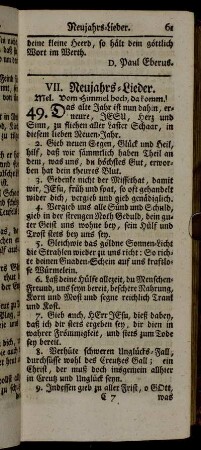 Neujahrs-Lieder. 61
deine kleine Heerd, so hält dein göttlich
Wort im Werth.
D. Paul Eberus.
VII. Neujahrs-Lieder.
Mel. Vom Himmel hoch, da komm.
49. Das alte Jahr ist nun dahin, er-
neure, JESU, Herz und
Sinn, zu fliehen aller Laster Schaar, in
diesem lieben Neuen-Jahr.
2. Gib neuen Segen, Glück und Heil,
hilf, daß wir sämmtlich haben Theil an
dem, was uns, du höchstes Gut, erwor-
ben hat dein theures Blut.
3. Gedenk nicht der Missethat, damit
wir, JEsu, früh und spat, so oft gehandelt
wider dich, vergieb und gieb genädiglich.
4. Vergieb uns alle Sünd und Schuld,
gieb in der strengen Noth Geduld, dein gu-
ter Geist uns wohne bey, sein Hülf und
Trost stets bey uns sey.
5. Gleichwie das goldne Sonnen-Licht
die Strahlen wieder zu uns richt: So rich-
te deinen Gnaden-Schein auf uns trafilo-
se Würmelein.
6. Laß deine Hülfe allzeit, du Menschen-
Freund, uns seyn bereit, beschere Nahrung,
Korn und Most und segne reichlich Trank
und Kost.
7. Gieb auch, HErr JEsu, dieß dabey,
daß ich dir stets ergeben sey, dir dien in
wahrer Frömmigkeit, und stets zum Tode
sey bereit.
8. Verhüte schweren Unglücks-Fall,
durchsüsse wohl des Creutzes Gall; ein
Christ, der muß doch insgemein allhier
in Creutz und Unglück seyn.
9. Indessen gieb zu aller Frist, o GOtt,
C 7 was